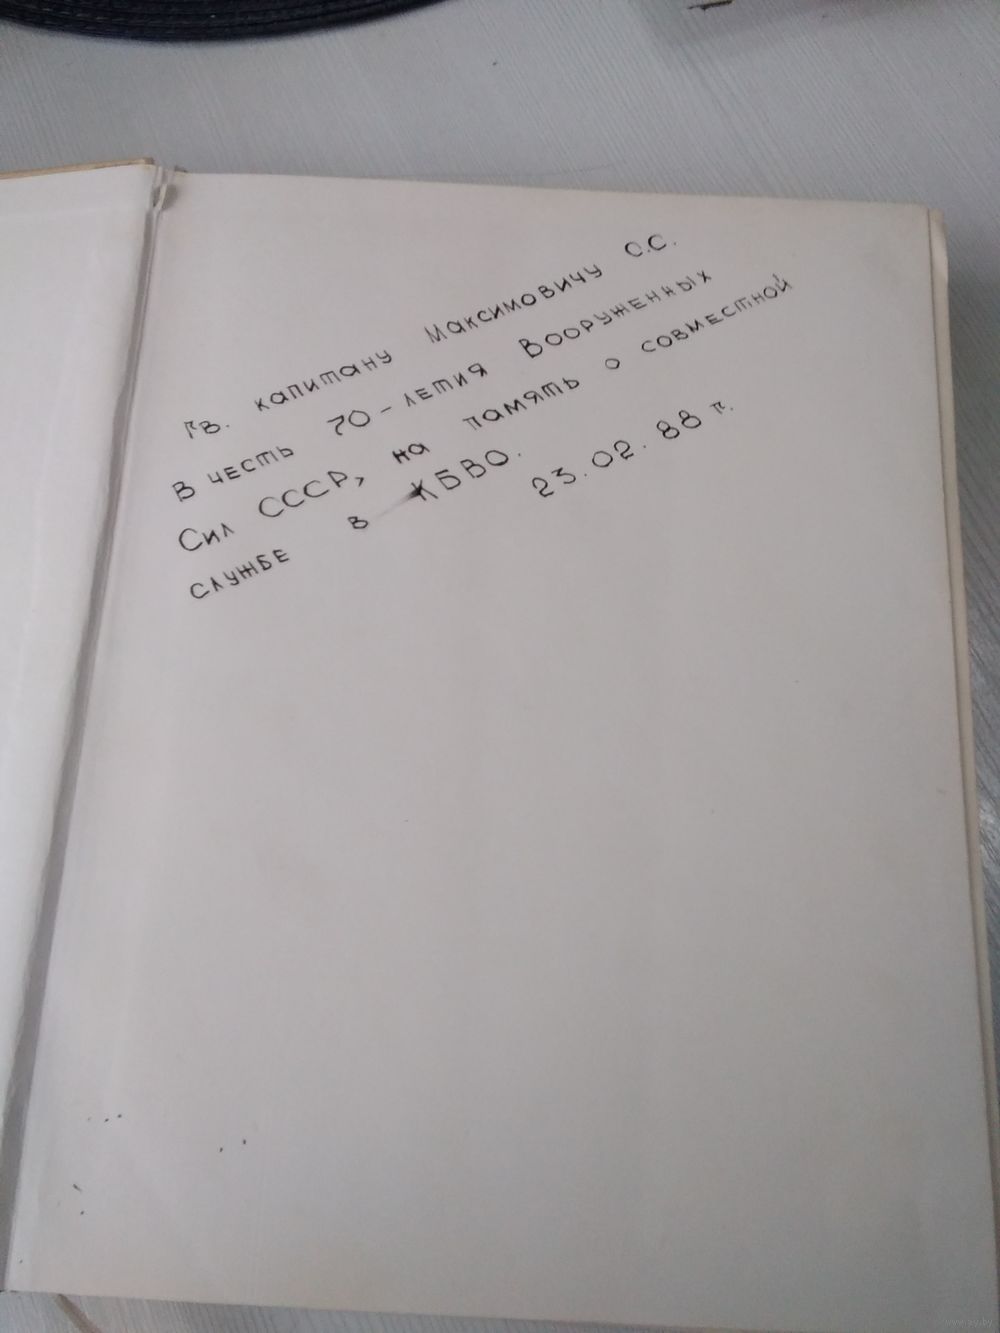 Гв. капитану Максимовичу С.С.
В честь 70-летия Вооруженных
Сил СССР, на память о совместной
службе в КБВО.
23.02.88 г.
www.ay.by